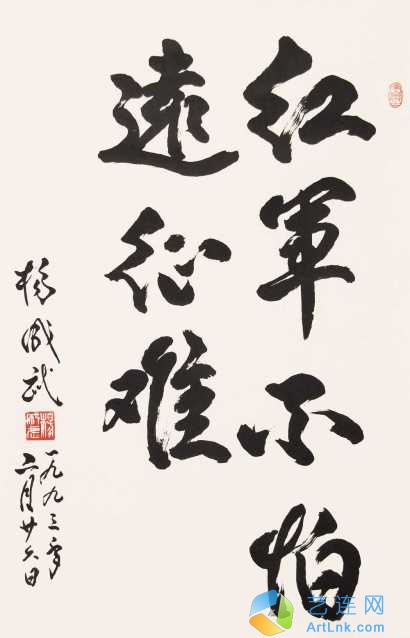 红軍不怕
遠征难
杨成武
一九九三年
二月廿六日
艺连网
ArtLnk.com